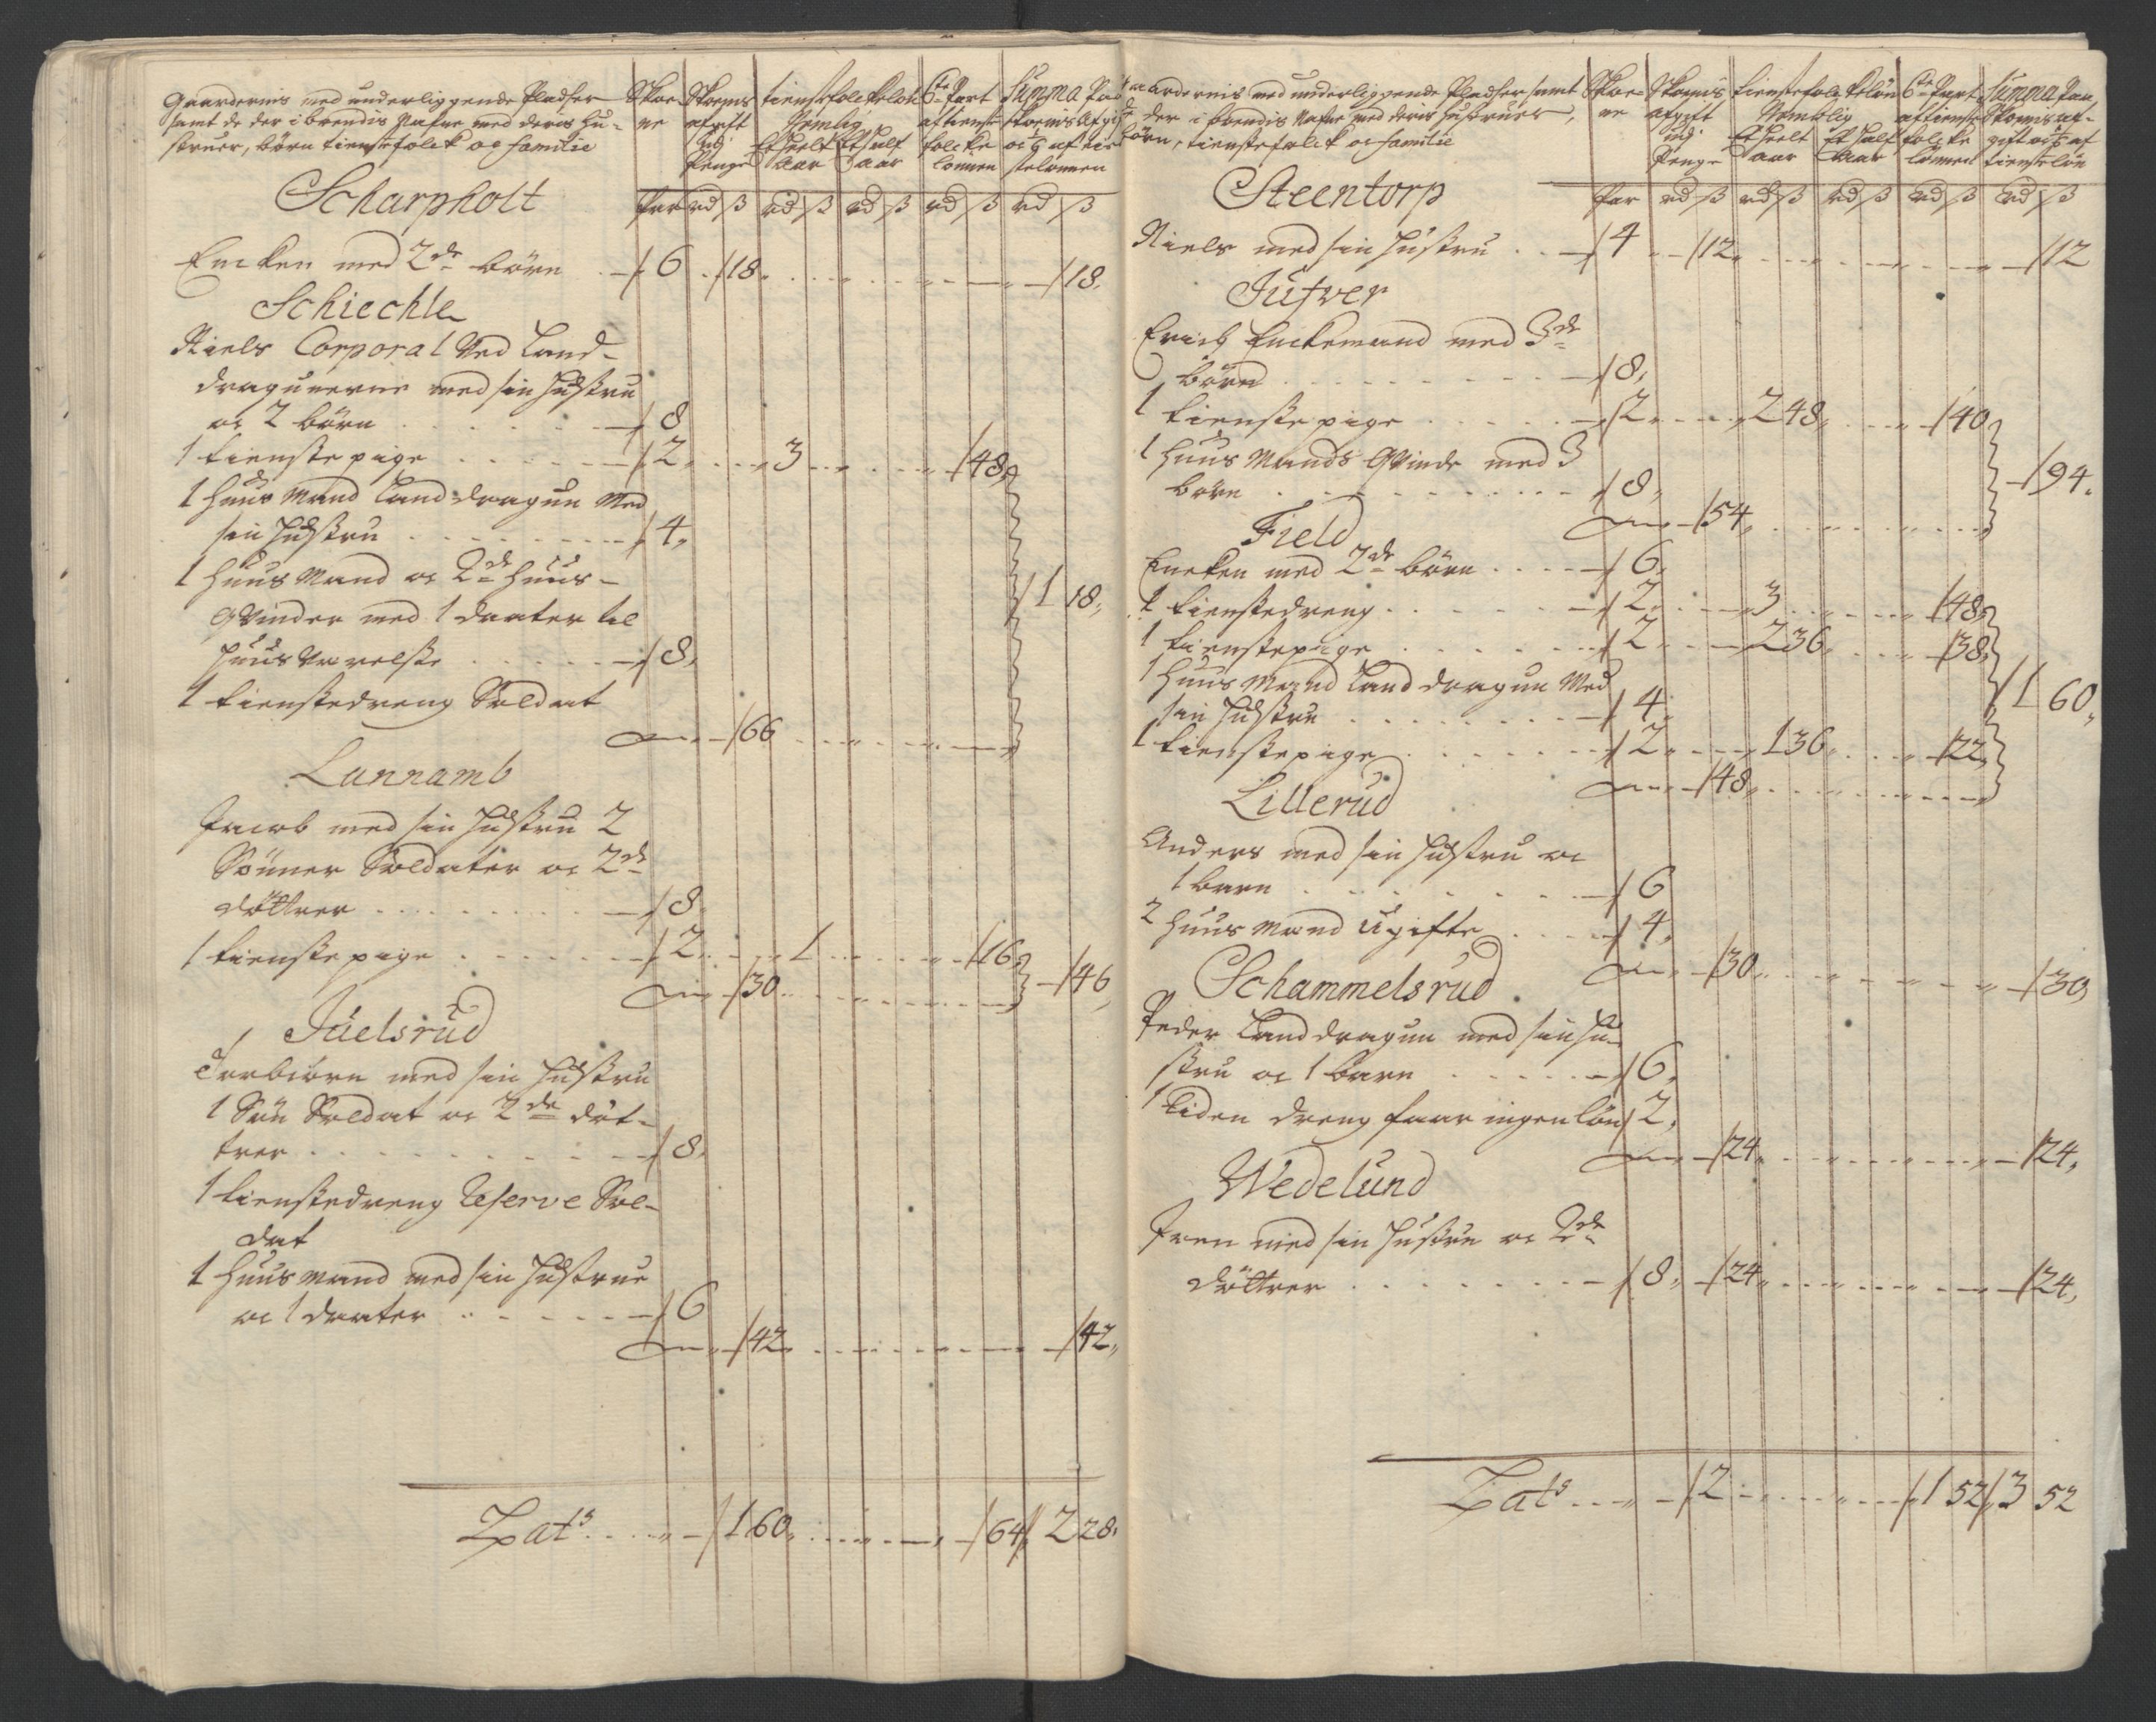 Gaardernis med underliggende Pladser
samt de der iboendis Nafne med deris Hu-
struer, börn tienestefolck oc familie
Skoe
ne
Skoens
afgift
udj
Penge
tienistefolckelön
Nemlig
Et heelt Aar
Et half Aar
6te Part
af tienste
folcke
lönnen
Summa Paa
skoens afgift
oc 6 af tie
stelönnen
Scharpholt
Par rd ß rd ß rd ß rd ß rd ß
Encken med 2de börn 6 18 18
Schiechle
Niels Corporal Ved Land-
dragunerne med sin Hustru
oc 2 börn 8
1 tienste pige 2 3 48
1 Huus Mand Land dragun Med
sin Hustru 4
1 Huus Mand oc 2de Huus-
qvinder med 1 daater til
Huus Værelse 8 1 18
1 tienstedreng Soldat
66
Lunramb
Jacob med sin Hustru 2
Sönner Soldater oc 2de
döttrer 8
1 tienste pige 2 1 16
30 46
Juelsrud
Torbiörn med sin Hustru
1 Sön Soldat oc 2de döt-
trer 8
1 tienstedreng Reserve Sol-
dat
1 Huus mand med sin Hustrue
oc 1 daater 6
42 42
Lats 1 60 64 2 28
Gaardernis med underliggende Pladser samt
de der iboendis Nafne med deris Hustruer,
börn, tienstefolck oc familie
Skoe-
ne
Skoens
afgift
udj
Penge
tienstefolckelön
Nemblig
Et heelt Aar
Et half Aar
6te Part
af tienste
folcke
lönnen
Summa Paa
Skoens af-
gift oc 6 af
tienstelön
Steentorp
Par rd ß rd ß rd ß rd ß rd ß
Niels med sin Hustru 4 12 12
Jufver
Erich Enckemand med 3de
börn 8
1 tienste pige 2 2 48 40
1 Huus Mands Qvinde med 3
börn 8 94
54
Field
Encken med 2de börn 6
1 tienstedreng 2 3 48
1 tienstepige 2 2 36 38
1 Huus Mand Land dragun Med
sin Hustru 4 1 60
1 tienstepige 2 1 36 22
48
Lillerud
Anders med sin Hustru oc
1 barn 6
2 Huus Mand ugifte 4
30 30
Schammelsrud
Peder Land dragun med sin Hu-
stru oc 1 barn 6
1 Liden dreng faar ingen lön 2
24 24
Wedelund
Iven med sin Hustru oc 2de
döttrer 8 24 24
Lats 2 1 52 3 52